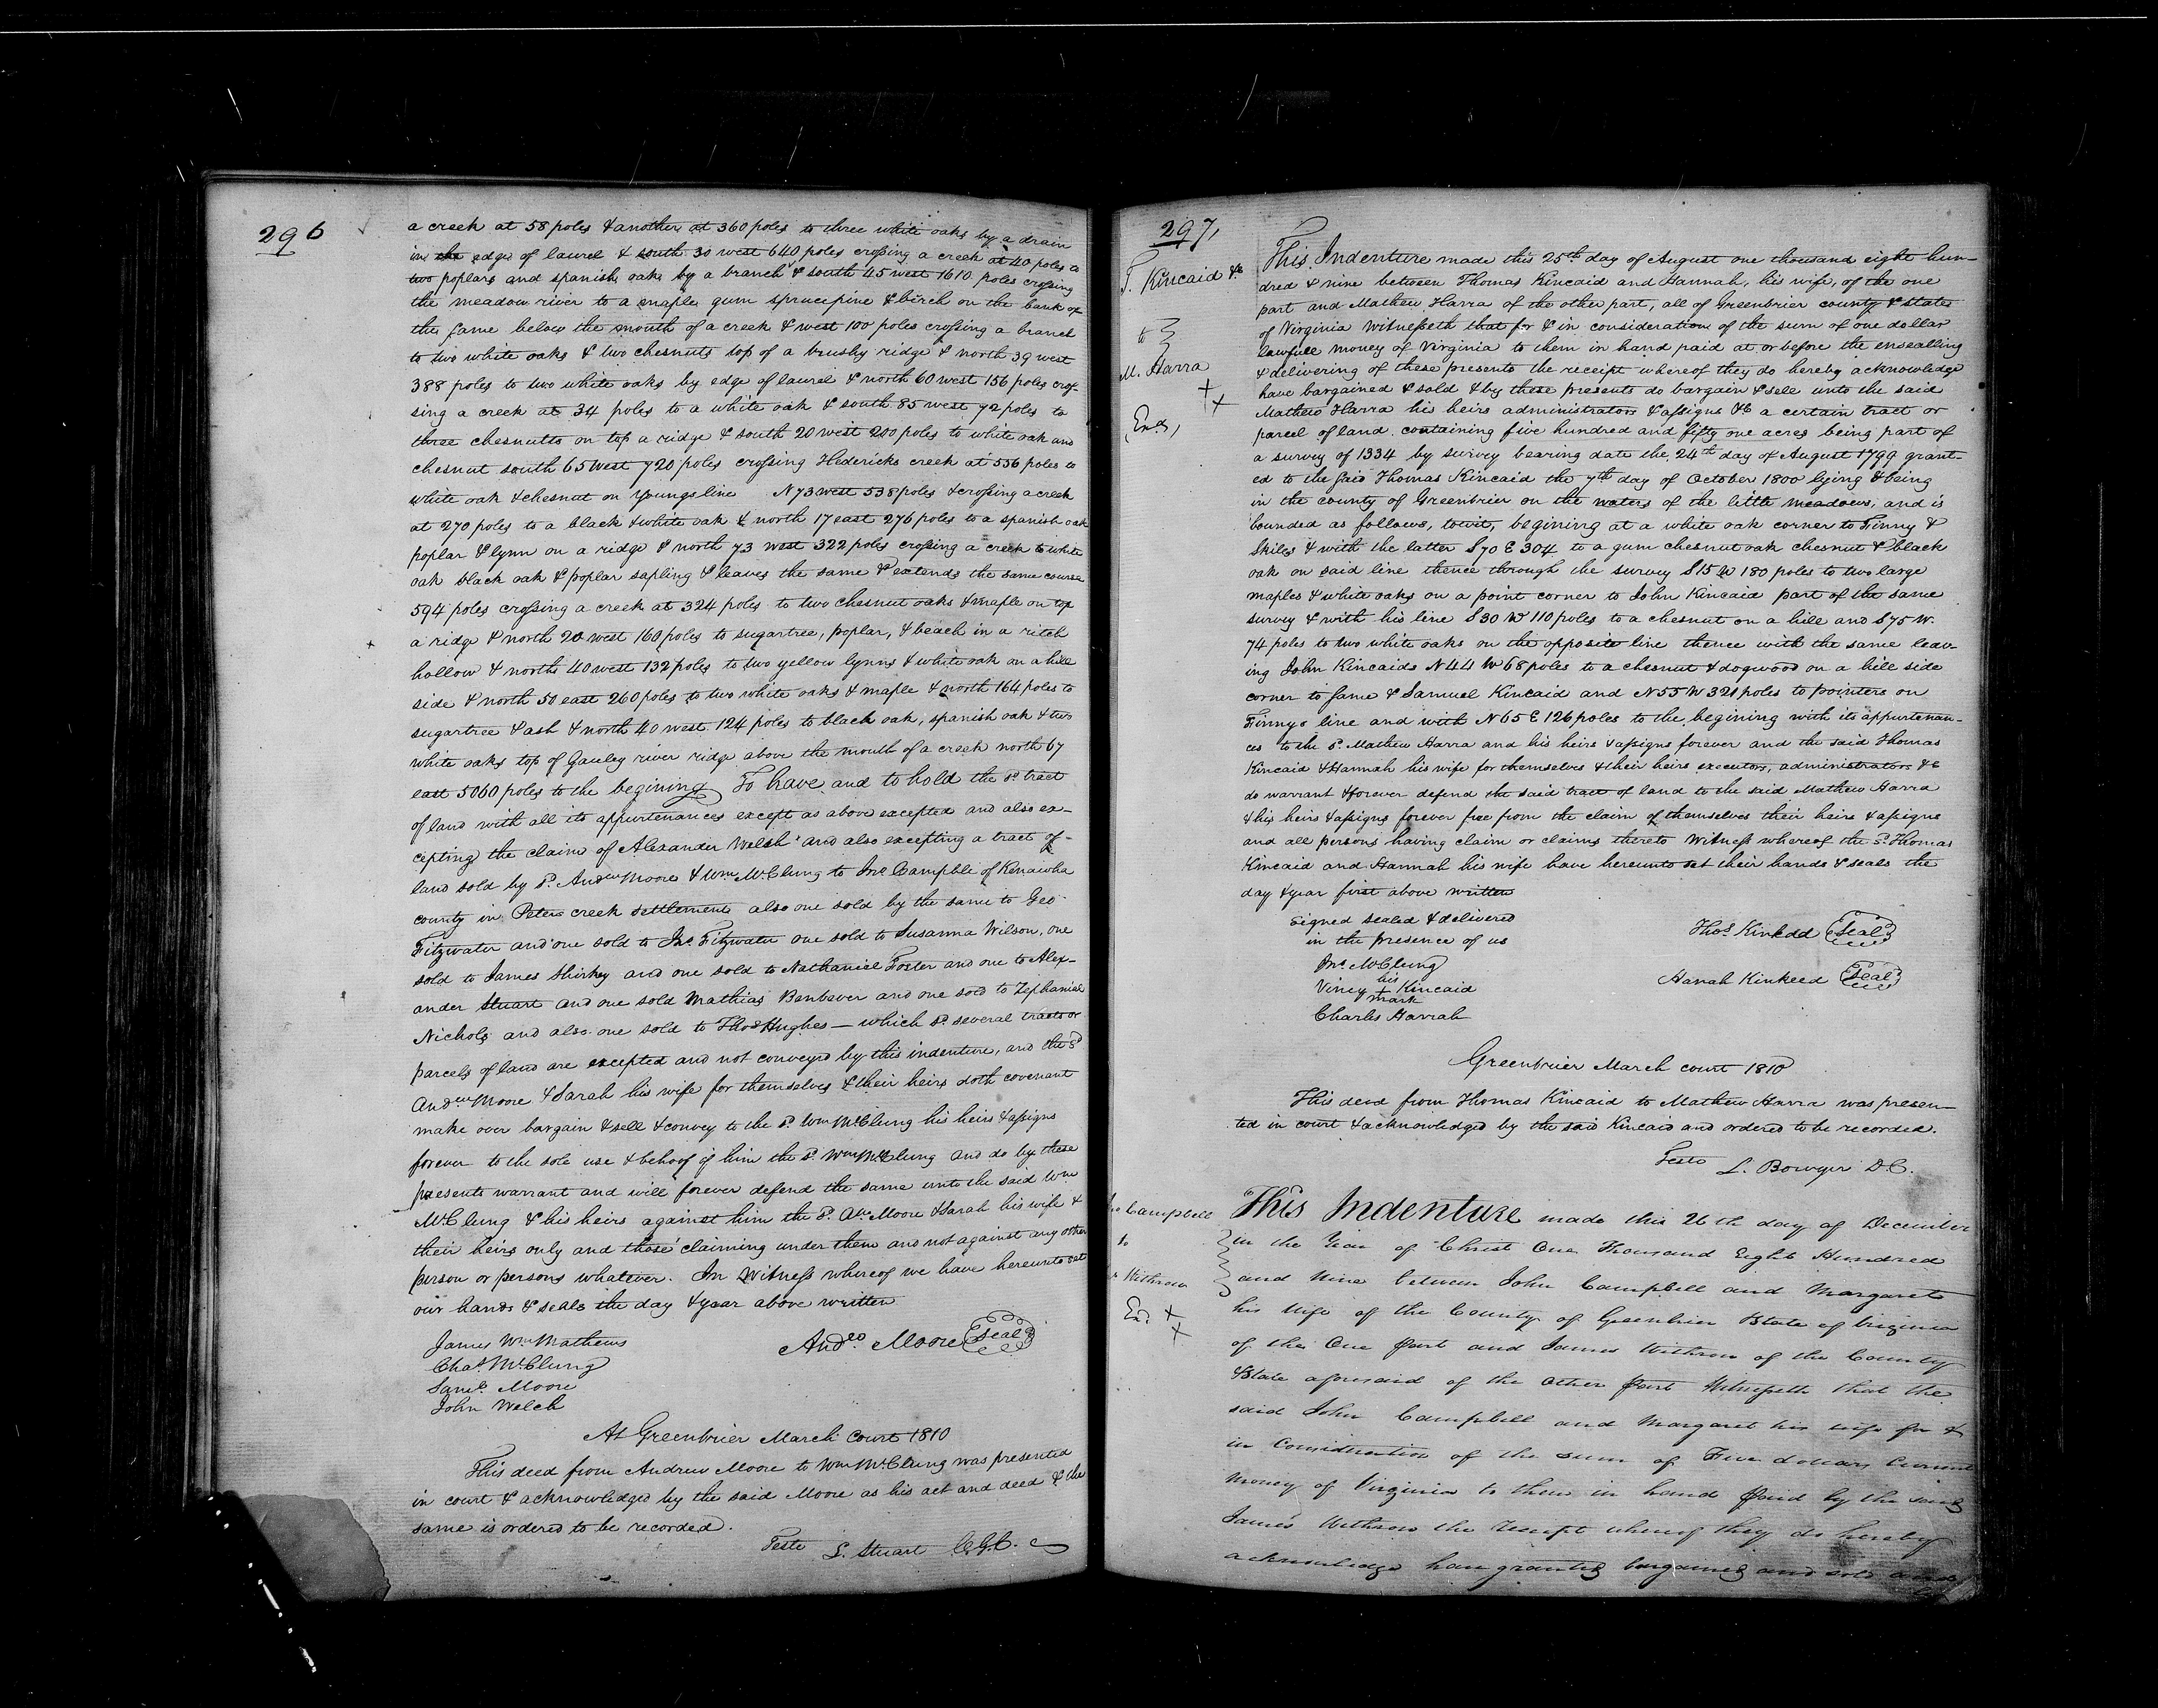 296
a creek at 58 poles & another at 360 poles to three white oaks by a drain
in the edge of laurel & south 30 west 640 poles crossing a creek at 40 poles to
two poplars and spanish oak by a branch & south 45 west 1610 poles crossing
the meadow river to a maple gum sprucepine & birch on the bank of
the same below the mouth of a creek & west 100 poles crossing a branch
to two white oaks & two chesnuts top of a brushy ridge & north 39 west
388 poles to two white oaks by edge of laurel & north 60 west 156 poles cros-
sing a creek at 34 poles to a white oak & south 85 west 72 poles to
three chesnutts on top a ridge & south 20 west 200 poles to white oak and
chesnut south 65 west 720 poles crossing Hedericks creek at 556 poles to
white oak & chesnut on Youngs line N 73 west 538 poles & crossing a creek
at 270 poles to a black & white oak & north 17 east 276 poles to a spanish oak
poplar & lynn on a ridge & north 73 west 322 poles crossing a creek to white
oak black oak & poplar sapling & leaves the same & extends the same course
594 poles crossing a creek at 324 poles to two chesnut oaks & maple on top
a ridge & north 20 west 160 poles to sugartree, poplar, & beach in a ritch
hollow & north 40 west 132 poles to two yellow lynns & white oak on a hill
side & north 50 east 260 poles to two white oaks & maple & north 164 poles to
sugartree & ash & north 40 west 124 poles to black oak, spanish oak & two
white oaks top of Gauley river ridge above the mouth of a creek north 67
east 5060 poles to the begining To have and to hold the sd tract
of land with all its appurtenances except as above excepted and also ex-
cepting the claim of Alexander Welsh and also excepting a tract of
land sold by sd. Andw Moore & Wm McClung to Jno Campble of Kenawha
county in Peters creek settlement also one sold by the same to Geo
Fitzwater and one sold to Jno Fitzwater one sold to Susanna Wilson, one
sold to James Shirkey and one sold to Nathaniel Foster and one to Alex-
ander Stuart and one sold Mathias Vanbever and one sold to Zephaniah
Nichols and also one sold to Thos Hughes — which sd. several tracts or
parcels of land are excepted and not conveyed by this indenture, and the sd
Andw Moore & Sarah his wife for themselves & their heirs doth covenant
make over bargain & sell & convey to the sd. Wm McClung his heirs & assigns
forever to the sole use & behoof of him the sd. Wm McClung and do by these
presents warrant and will forever defend the same unto the said Wm
McClung & his heirs against him the sd. Aw Moore & Sarah his wife &
their heirs only and those claiming under them and not against any other
person or persons whatever. In Witness whereof we have hereunto set
our hands & seals the day & year above written
James Wm Mathews Andw Moore Seal
Chas McClung
Saml Moore
John Welch
At Greenbrier March Court 1810
This deed from Andrew Moore to Wm McClung was presented
in court & acknowledged by the said Moore as his act and deed & the
same is ordered to be recorded.
Teste L. Stuart C.G.C.
297
T. Kincaid &c
to
M. Harra
Exd,
This Indenture made this 25th day of August one thousand eight hun-
dred & nine between Thomas Kincaid and Hannah, his wife, of the one
part and Mathew Harra of the other part, all of Greenbrier county & state
of Virginia Witnesseth that for & in consideration of the sum of one dollar
lawfull money of Virginia to them in hand paid at or before the ensealling
& delivering of these presents the receipt whereof they do hereby acknowledge
have bargained & sold & by these presents do bargain & sell unto the said
Mathew Harra his heirs administrators & assigns &c a certain tract or
parcel of land containing five hundred and fifty one acres being part of
a survey of 1334 by survey bearing date the 24th day of August 1799 grant-
ed to the said Thomas Kincaid the 7th day of October 1800 lying & being
in the county of Greenbrier on the waters of the little meadows, and is
bounded as follows, towit, begining at a white oak corner to Finny &
Skiles & with the latter S 70 E 304 to a gum chesnut oak chesnut & black
oak on said line thence through the survey S 15 W 180 poles to two large
maples & white oaks on a point corner to John Kincaid part of the same
survey & with his line S 30 W 110 poles to a chesnut on a hill and S 75 W.
74 poles to two white oaks on the opposite line thence with the same leav-
ing John Kincaids N 44 W 68 poles to a chesnut & dogwood on a hill side
corner to same & Samuel Kincaid and N 55 W 320 poles to pointers on
Finnys line and with N 65 E 126 poles to the begining with its appurtenan-
ces to the sd. Mathew Harra and his heirs & assigns forever and the said Thomas
Kincaid & Hannah his wife for themselves & their heirs executors, administrators &c
do warrant & forever defend the said tract of land to the said Mathew Harra
& his heirs & assigns forever free from the claim of themselves their heirs & assigns
and all persons having claim or claims thereto Witness whereof the sd. Thomas
Kincaid and Hannah his wife have hereunto set their hands & seals the
day & year first above written
Signed sealed & delivered
in the presence of us Thos Kinkdd Seal
Jno McClung
Viney his + mark Kincaid Hanah Kinkeed Seal
Charles Harrah
Greenbrier March court 1810
This deed from Thomas Kincaid to Mathew Harra was presen-
ted in court & acknowledged by the said Kincaid and ordered to be recorded.
Teste L. Bowyer D.C.
Campbell
to
Withrow
Exd
This Indenture made this 26th day of December
in the Year of Christ One Thousand Eight Hundred
and Nine between John Campbell and Margaret
his Wife of the County of Greenbrier State of Virginia
of the One part and James Withrow of the County
State aforesaid of the other part Witnesseth that the
said John Campbell and Margaret his wife for &
in Consideration of the sum of Five dollars Current
Money of Virginia to them in hand paid by the said
James Withrow the receipt whereof they do hereby
acknowledge have granted bargained and sold and